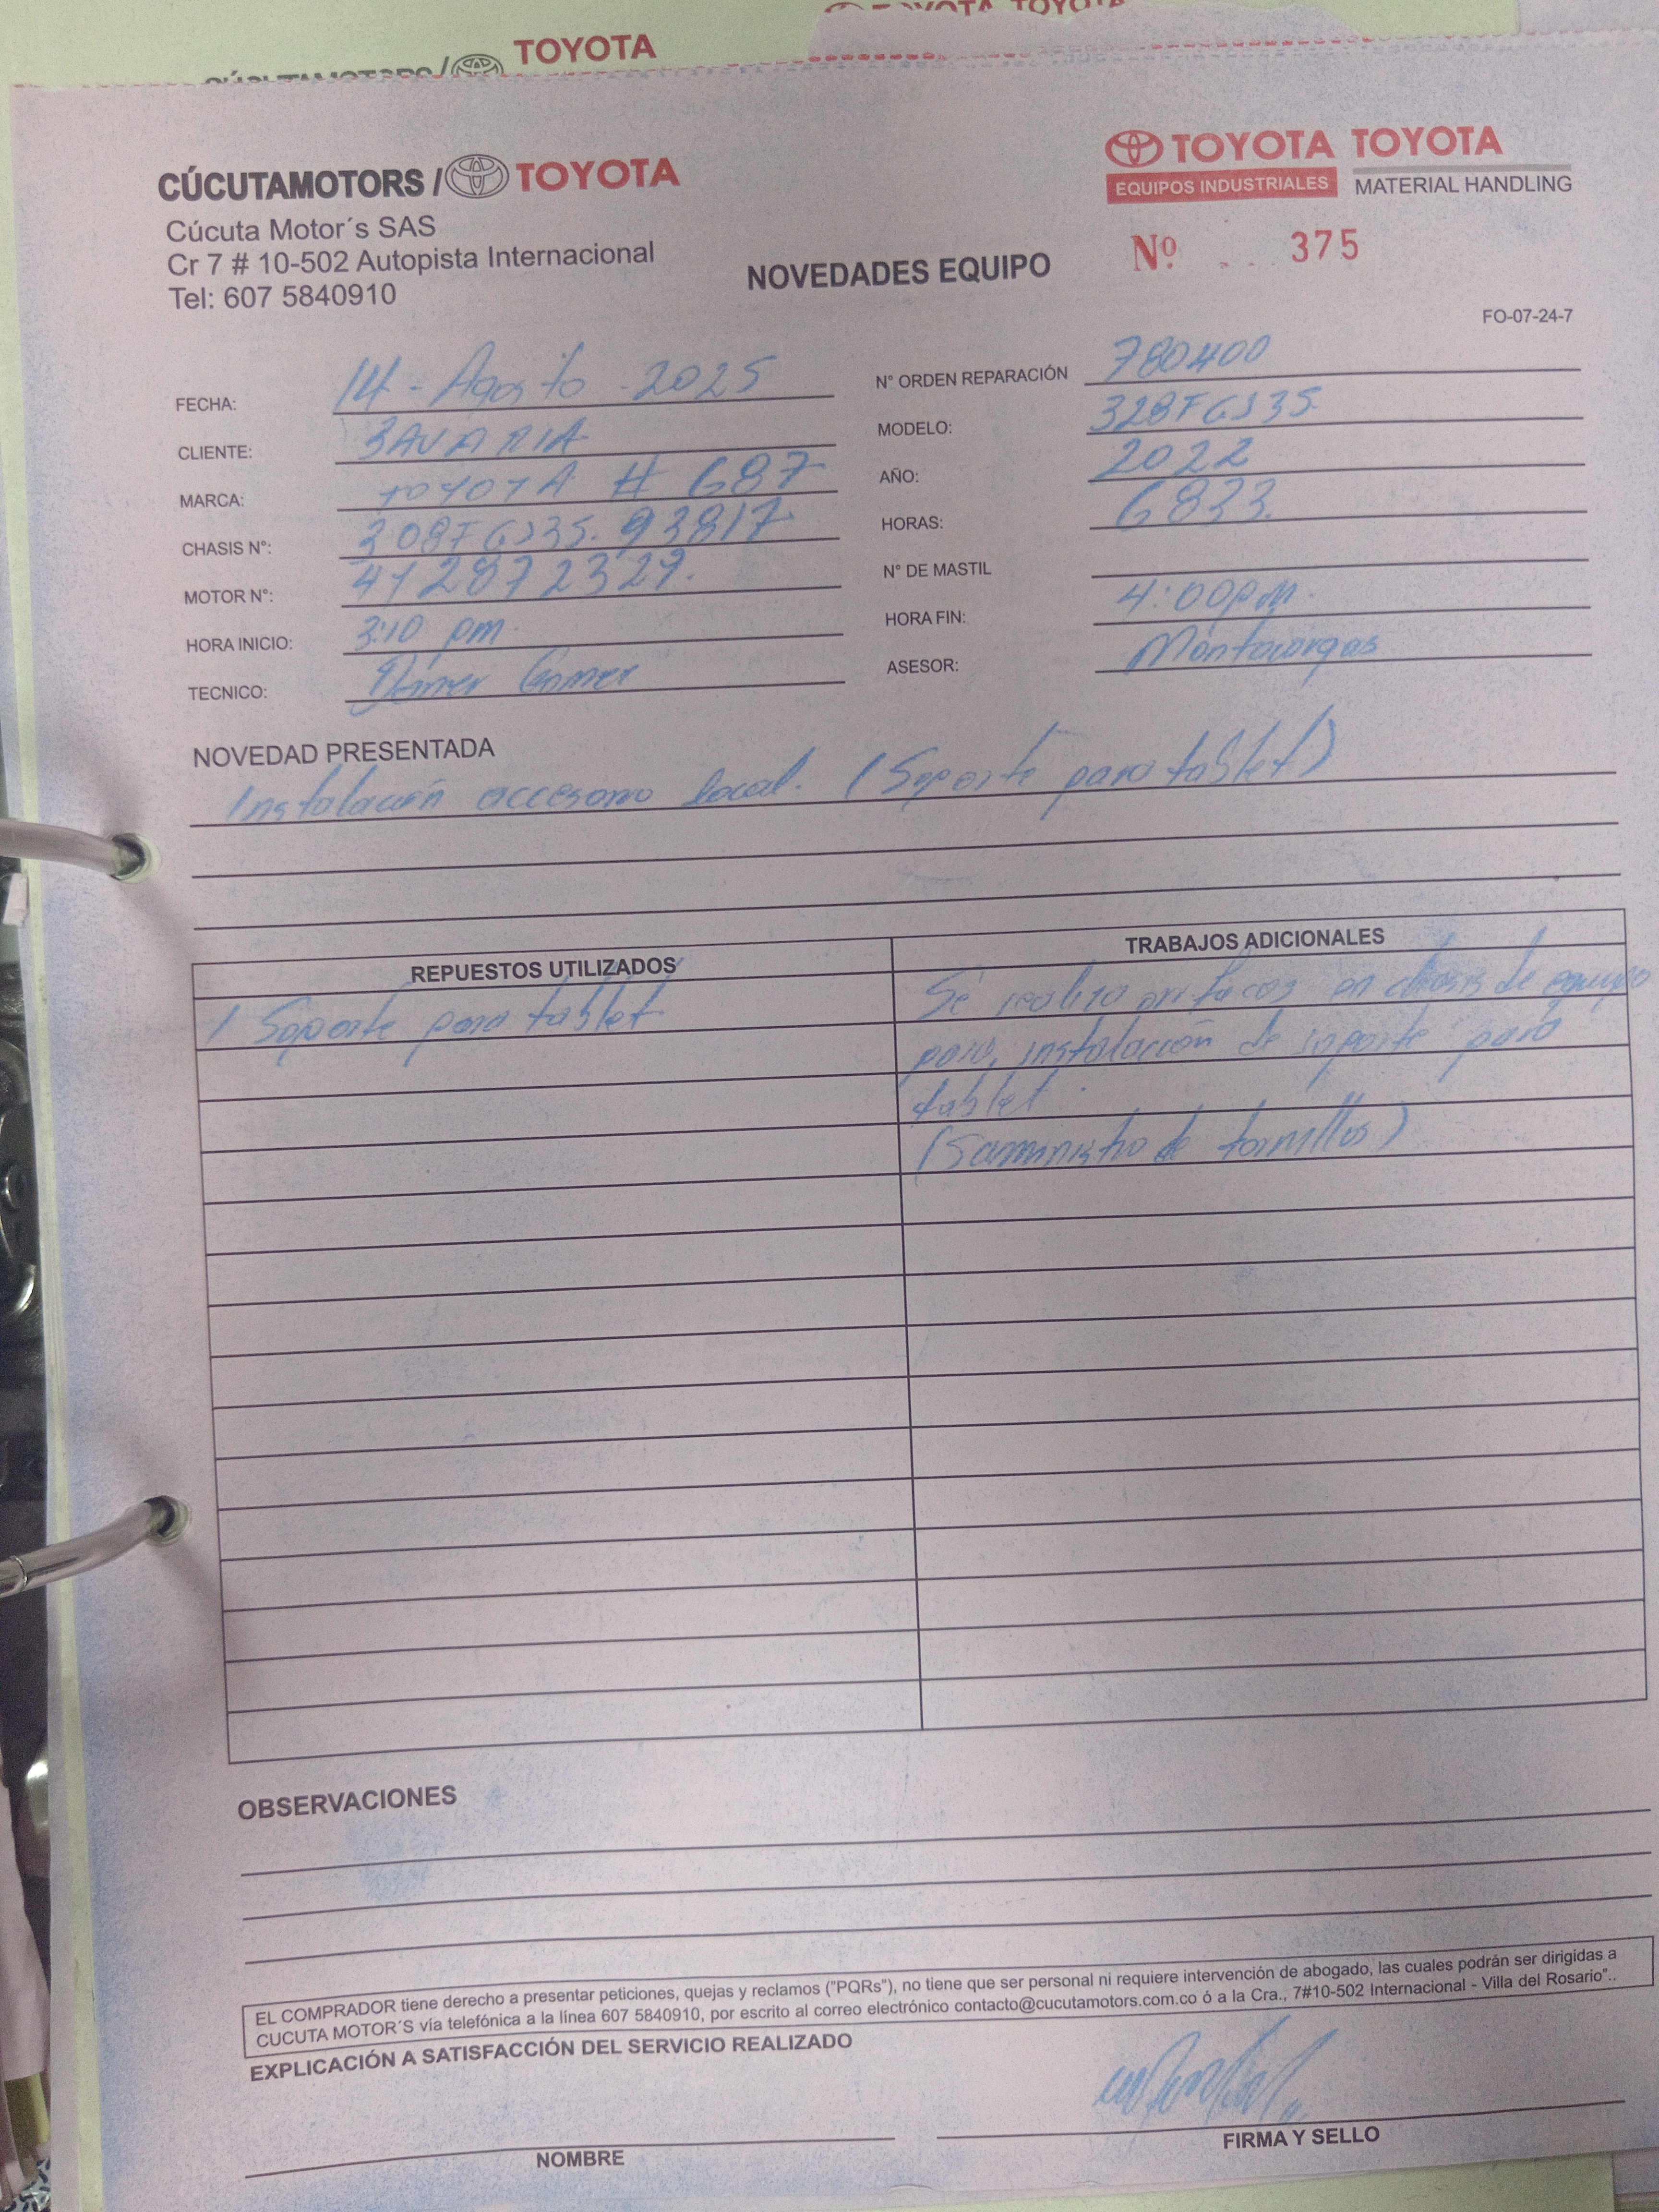 TOYOTA TOYOTA
CÚCUTAMOTORS/ TOYOTA
CÚCUTAMOTORS / TOYOTA
TOYOTA TOYOTA
EQUIPOS INDUSTRIALES MATERIAL HANDLING
Cúcuta Motor´s SAS
Cr 7 # 10-502 Autopista Internacional
Tel: 607 5840910
NOVEDADES EQUIPO
Nº 375
FO-07-24-7
FECHA: 14 - Agosto - 2025
N° ORDEN REPARACIÓN 780400
CLIENTE: BAVARIA
MODELO: 328FGJ35.
MARCA: TOYOTA # 687
AÑO: 2022
CHASIS N°: 308FGJ35. 93817
HORAS: 6833.
MOTOR N°: 4Y2872329.
N° DE MASTIL
HORA INICIO: 3:10 pm.
HORA FIN: 4:00pm.
TECNICO:
ASESOR: Montacargas
NOVEDAD PRESENTADA
Instalación accesorio local. (Soporte para tablet)
REPUESTOS UTILIZADOS
1 Soporte para tablet.
TRABAJOS ADICIONALES
Se realiza orificios en chasis de equipo
para, instalación de soporte para
tablet.
(Suministro de tornillos)
OBSERVACIONES
EL COMPRADOR tiene derecho a presentar peticiones, quejas y reclamos ("PQRs"), no tiene que ser personal ni requiere intervención de abogado, las cuales podrán ser dirigidas a
CUCUTA MOTOR´S vía telefónica a la línea 607 5840910, por escrito al correo electrónico contacto@cucutamotors.com.co ó a la Cra., 7#10-502 Internacional - Villa del Rosario"..
EXPLICACIÓN A SATISFACCIÓN DEL SERVICIO REALIZADO
NOMBRE
FIRMA Y SELLO